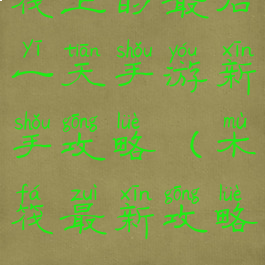 筏上的最后
yī tiān shǒu yóu xīn
一天手游新
shǒu gōng lüè mù
手攻略(木
fá zuì xīn gōng lüè
筏最新攻略